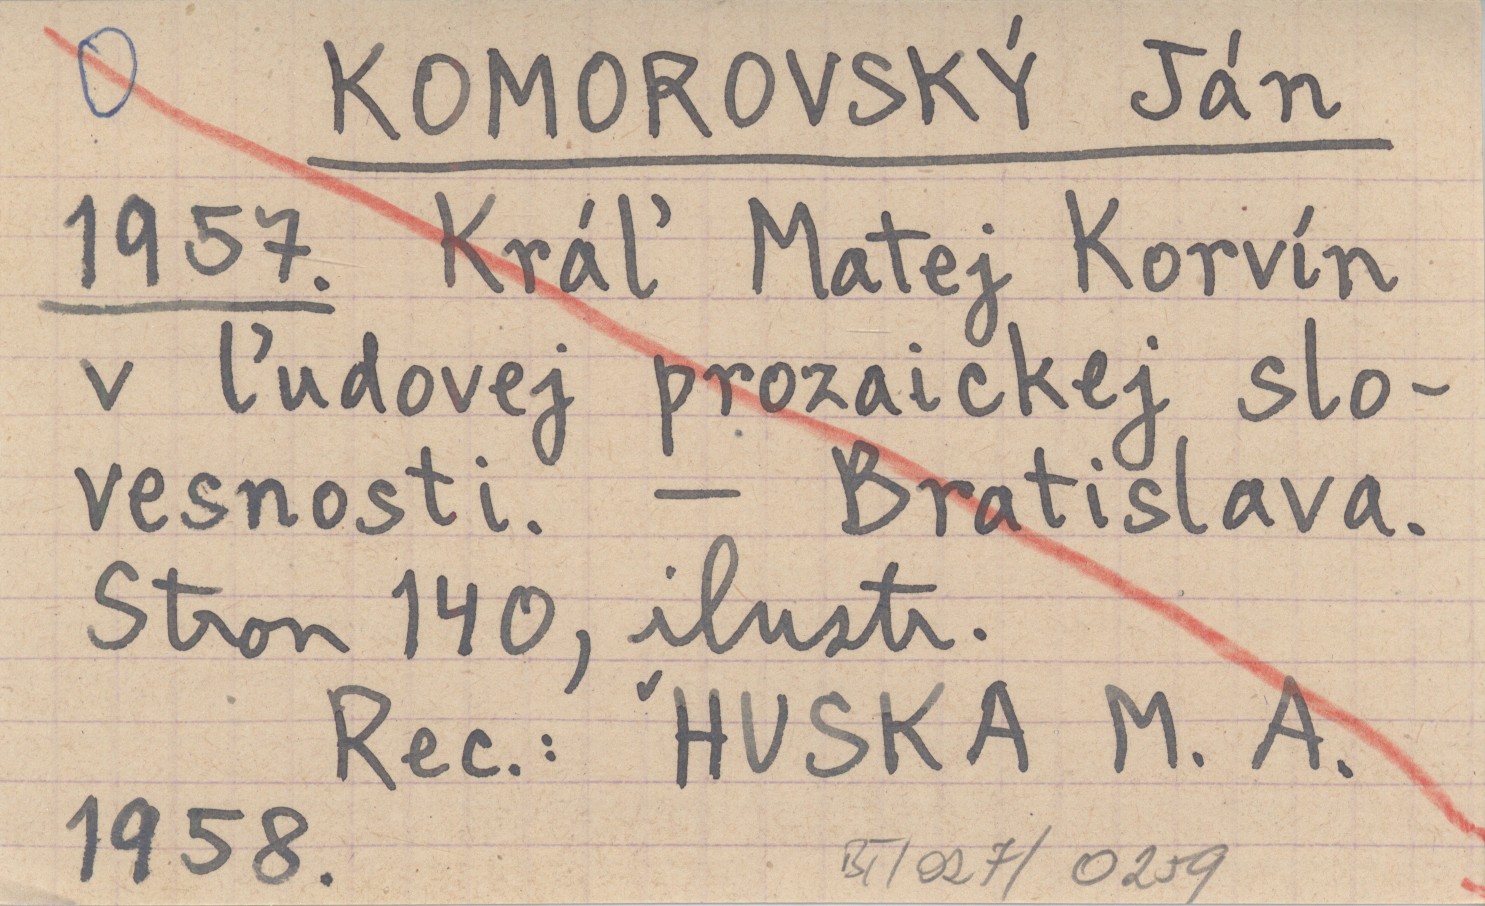 KOMOROVSKÝ Ján
1957. Kráľ Matej Korvín
v ľudovej prozaickej slo-
vesnosti. — Bratislava.
Stron 140, ilustr.
Rec.: HUSKA M. A.
1958.
BT/027/0259